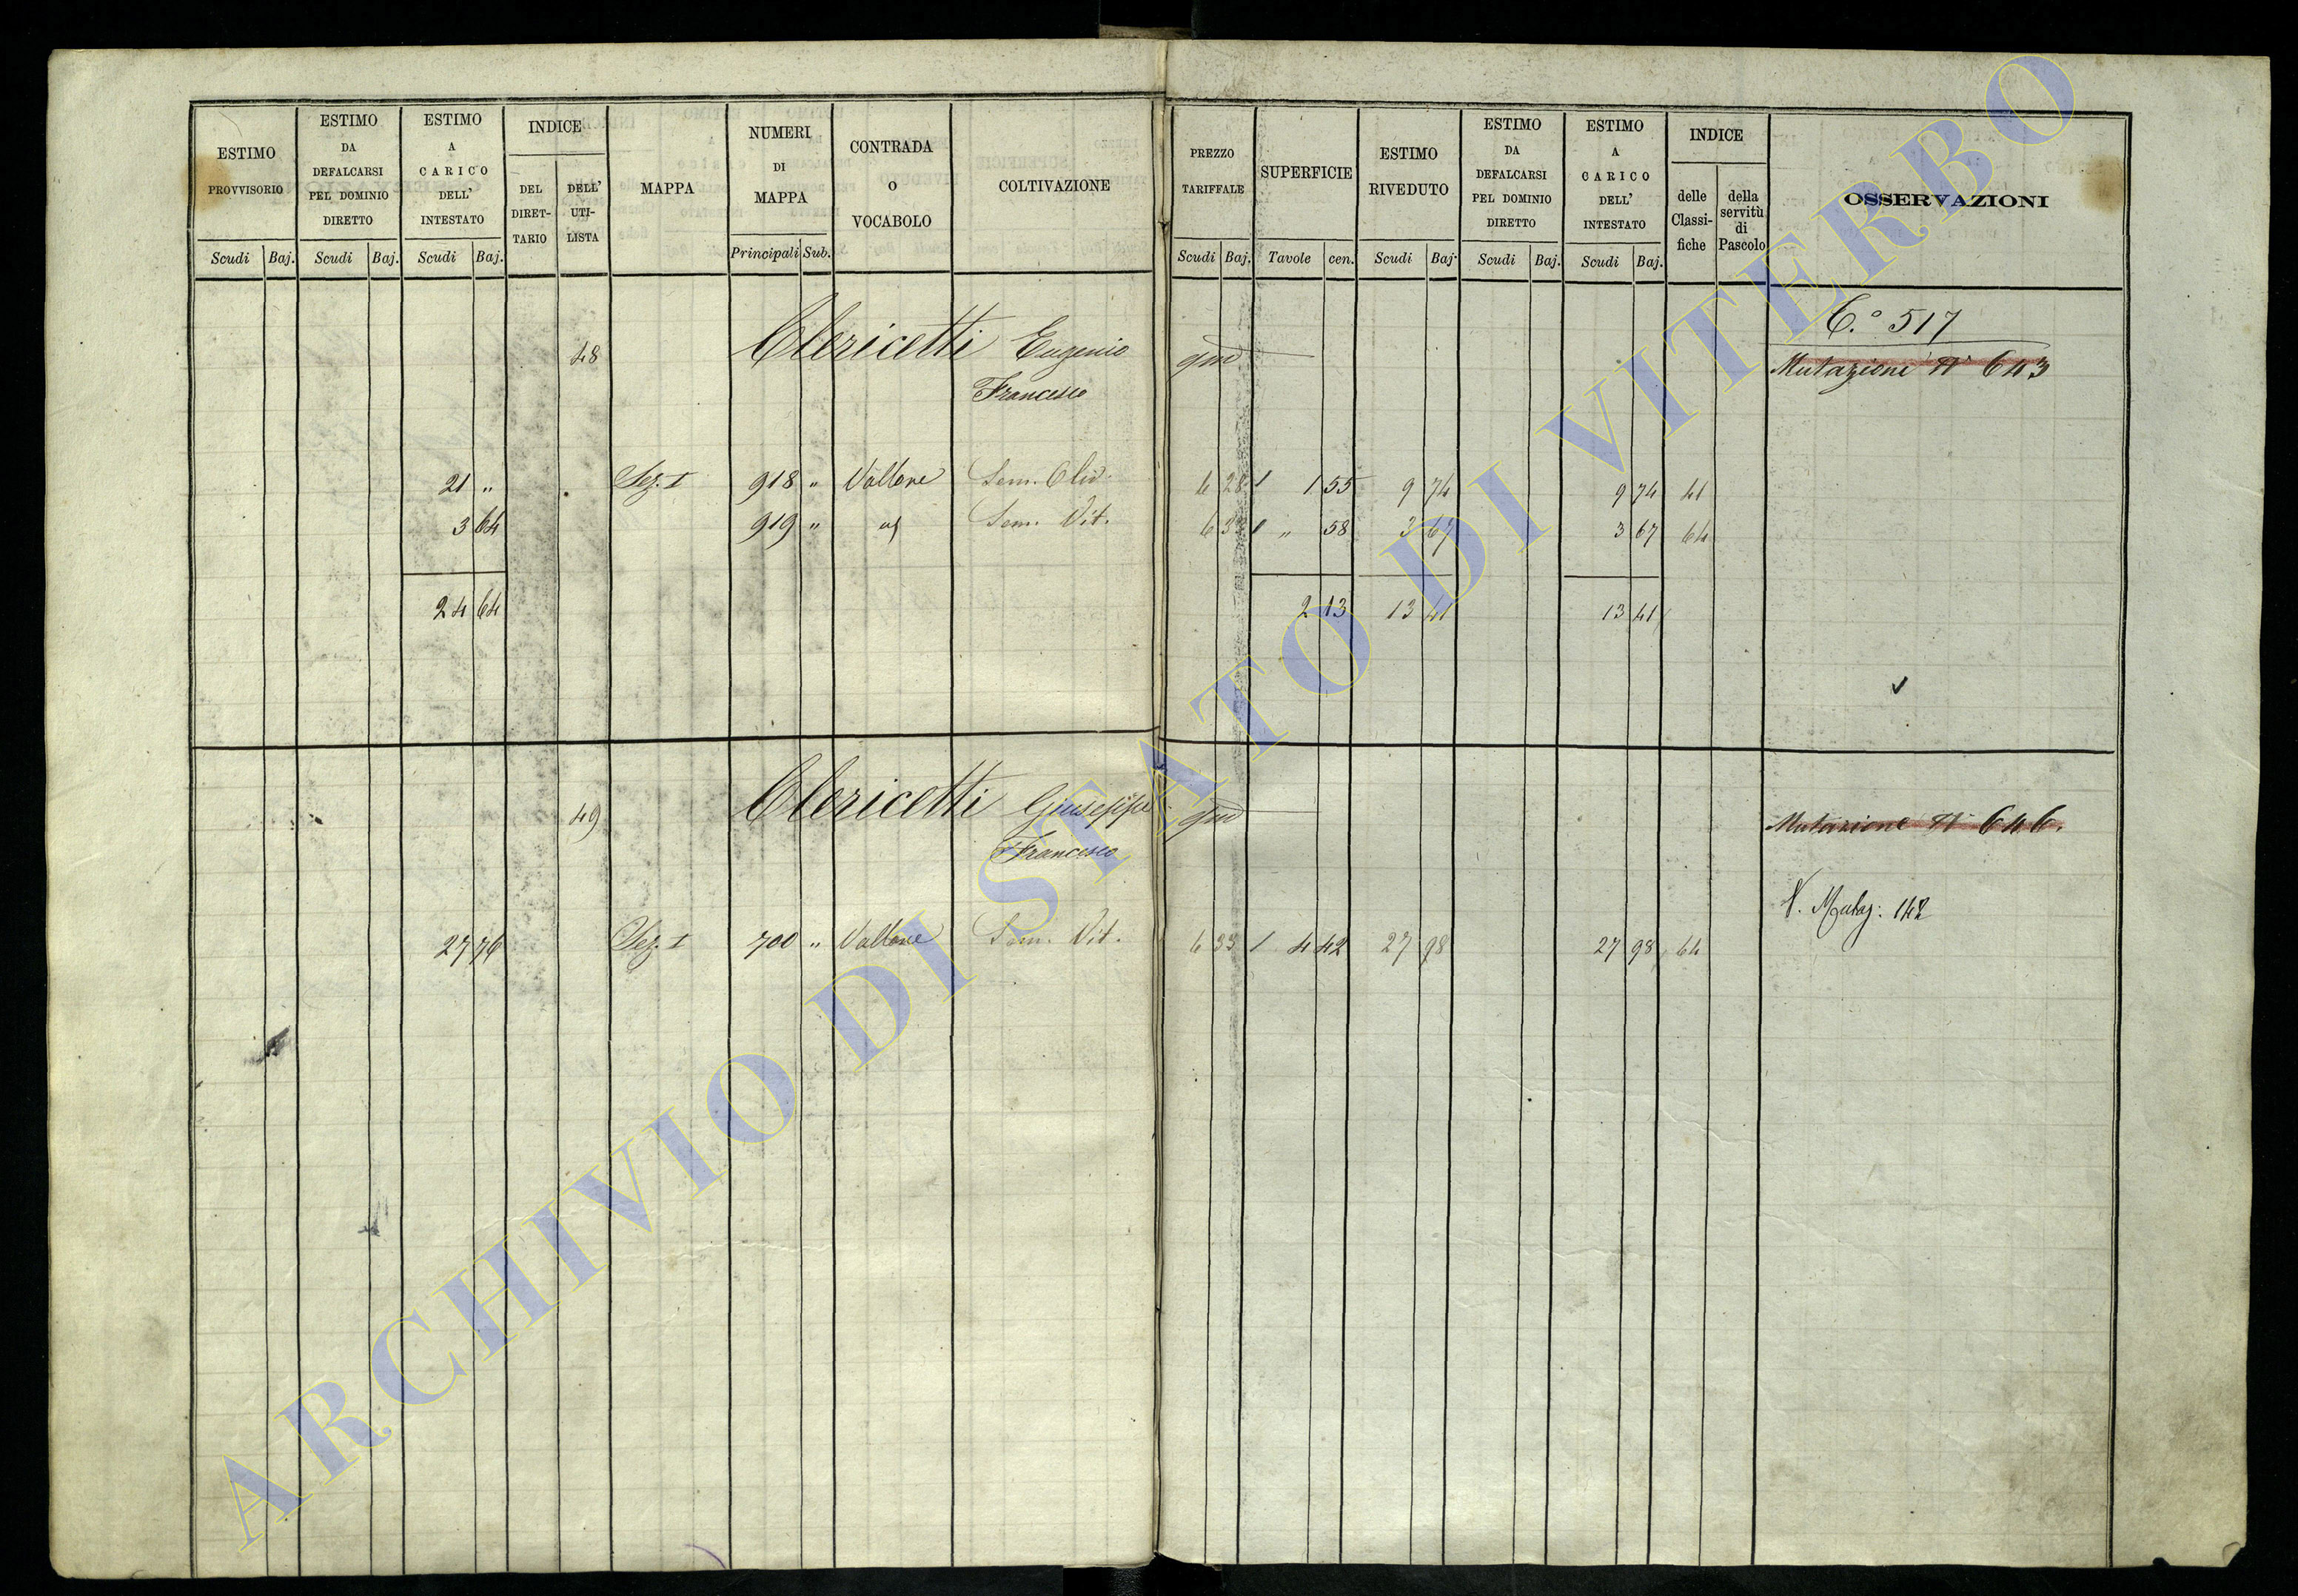 ESTIMO PROVVISORIO
Scudi Baj.
ESTIMO DA DEFALCARSI PEL DOMINIO DIRETTO
Scudi Baj.
ESTIMO A CARICO DELL' INTESTATO
Scudi Baj.
INDICE
DEL DIRET-TARIO
DELL' UTI-LISTA
MAPPA
NUMERI DI MAPPA
Principali Sub.
CONTRADA O VOCABOLO
COLTIVAZIONE
PREZZO TARIFFALE
Scudi Baj.
SUPERFICIE
Tavole cen.
ESTIMO RIVEDUTO
Scudi Baj.
ESTIMO DA DEFALCARSI PEL DOMINIO DIRETTO
Scudi Baj.
ESTIMO A CARICO DELL' INTESTATO
Scudi Baj.
INDICE
delle Classi-fiche
della servitù di Pascolo
OSSERVAZIONI
C.° 517
48 Clericetti Eugenio qm Mutazione N° 643
Francesco
21 " Sez. I 918 " Vallone Sem. Oliv. 6 28 1 55 9 74 9 74 41
3 64 919 " id Sem. Vit. 6 33 " 58 3 67 3 67 64
24 64 2 13 13 41 13 41
49 Clericetti Giuseppe qm Mutazione N° 646.
Francesco
V. Mutaz: 142
27 76 Sez. I 700 " Vallone Sem. Vit. 6 33 4 42 27 98 27 98 64
ARCHIVIO DI STATO DI VITERBO